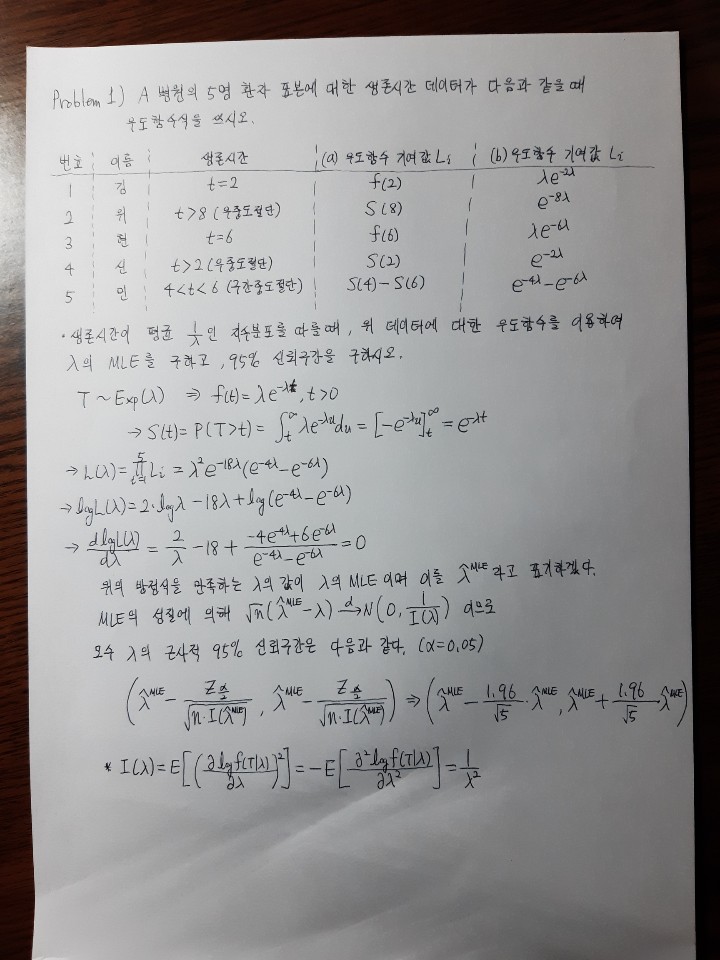 Problem 1) A 병원의 5명 환자 표본에 대한 생존시간 데이터가 다음과 같을 때
우도함수식을 쓰시오.
번호 이름 생존시간 (a) 우도함수 기여값 Li (b) 우도함수 기여값 Li
1 김 t=2 f(2) λe^-2λ
2 위 t>8 (우중도절단) S(8) e^-8λ
3 현 t=6 f(6) λe^-6λ
4 신 t>2 (우중도절단) S(2) e^-2λ
5 민 4<t<6 (구간중도절단) S(4)-S(6) e^-4λ-e^-6λ
• 생존시간이 평균 1/λ인 지수분포를 따를 때, 위 데이터에 대한 우도함수를 이용하여
λ의 MLE를 구하고, 95% 신뢰구간을 구하시오.
T~Exp(λ) ⇒ f(t)=λe^-λt, t>0
→ S(t)=P(T>t)=∫_t^∞ λe^-λu du=[-e^-λu]_t^∞=e^-λt
→ L(λ)=∏_{i=1}^5 Li=λ²e^-18λ(e^-4λ-e^-6λ)
→ logL(λ)=2·logλ-18λ+log(e^-4λ-e^-6λ)
→ dlogL(λ)/dλ=2/λ-18+(-4e^-4λ+6e^-6λ)/(e^-4λ-e^-6λ)=0
위의 방정식을 만족하는 λ의 값이 λ의 MLE이며 이를 λ̂^MLE라고 표기하겠다.
MLE의 성질에 의해 √n(λ̂^MLE-λ) →^d N(0, 1/I(λ)) 이므로
모수 λ의 근사적 95% 신뢰구간은 다음과 같다. (α=0.05)
(λ̂^MLE - Z_{α/2}/√(n·I(λ̂^MLE)), λ̂^MLE - Z_{α/2}/√(n·I(λ̂^MLE))) ⇒ (λ̂^MLE - 1.96/√5·λ̂^MLE, λ̂^MLE + 1.96/√5 λ̂^MLE)
* I(λ)=E[(∂logf(T|λ)/∂λ)²]=-E[∂²logf(T|λ)/∂λ²]=1/λ²